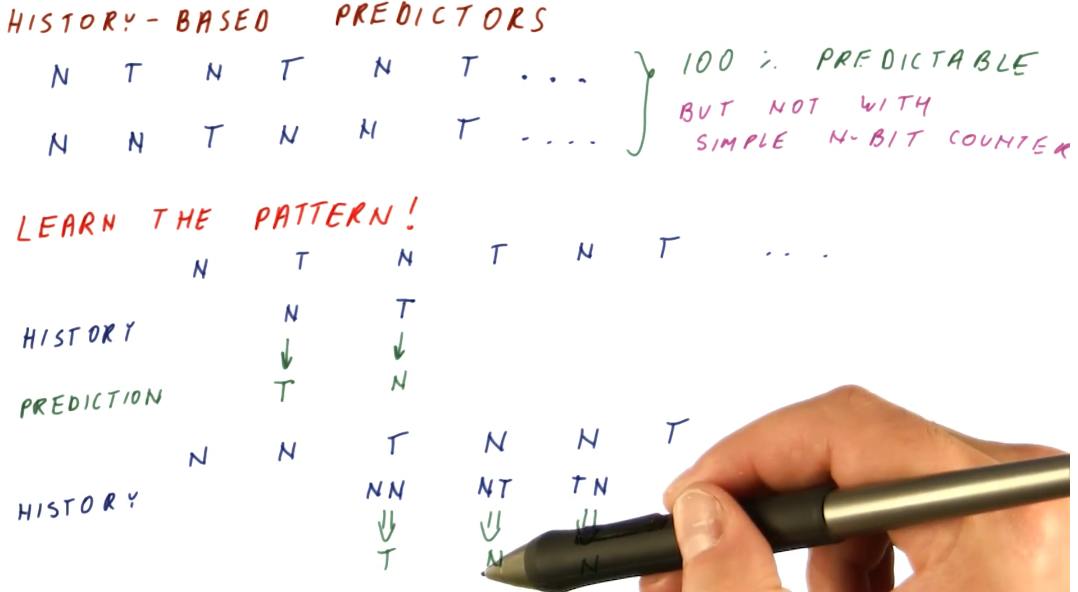 HISTORY-BASED PREDICTORS
N T N T N T ... 100 % PREDICTABLE
BUT NOT WITH
N N T N N T .... SIMPLE N-BIT COUNTER
LEARN THE PATTERN!
N T N T N T ...
HISTORY N T
↓ ↓
PREDICTION T N
N N T N N T
HISTORY NN NT TN
⇓ ⇓ ⇓
T N N